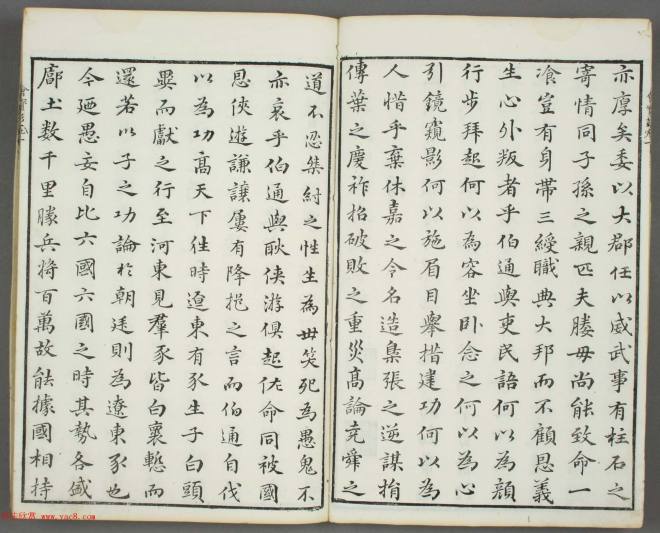 亦厚矣委以大郡任以威武事有柱石之
寄情同子孫之親匹夫媵母尚能致命一
飡豈有身帶三綬職典大邦而不顧恩義
生心外叛者乎伯通與吏民語何以為顏
行步拜起何以為容坐卧念之何以為心
引鏡窺影何以施眉目舉措建功何以為
人惜乎棄休嘉之令名造梟張之逆謀捐
傳葉之慶祚招破敗之重災高論堯舜之
道不忍桀紂之性生為世笑死為愚鬼不
亦哀乎伯通與耿俠游俱起佐命同被國
恩俠遊謙讓屢有降挹之言而伯通自伐
以為功高天下往時遼東有豕生子白頭
異而獻之行至河東見羣豕皆白裹慙而
還若以子之功論於朝廷則為遼東豕也
今廼愚妄自比六國六國之時其勢各盛
廓土数千里勝兵將百萬故能據國相持
www.yac8.com